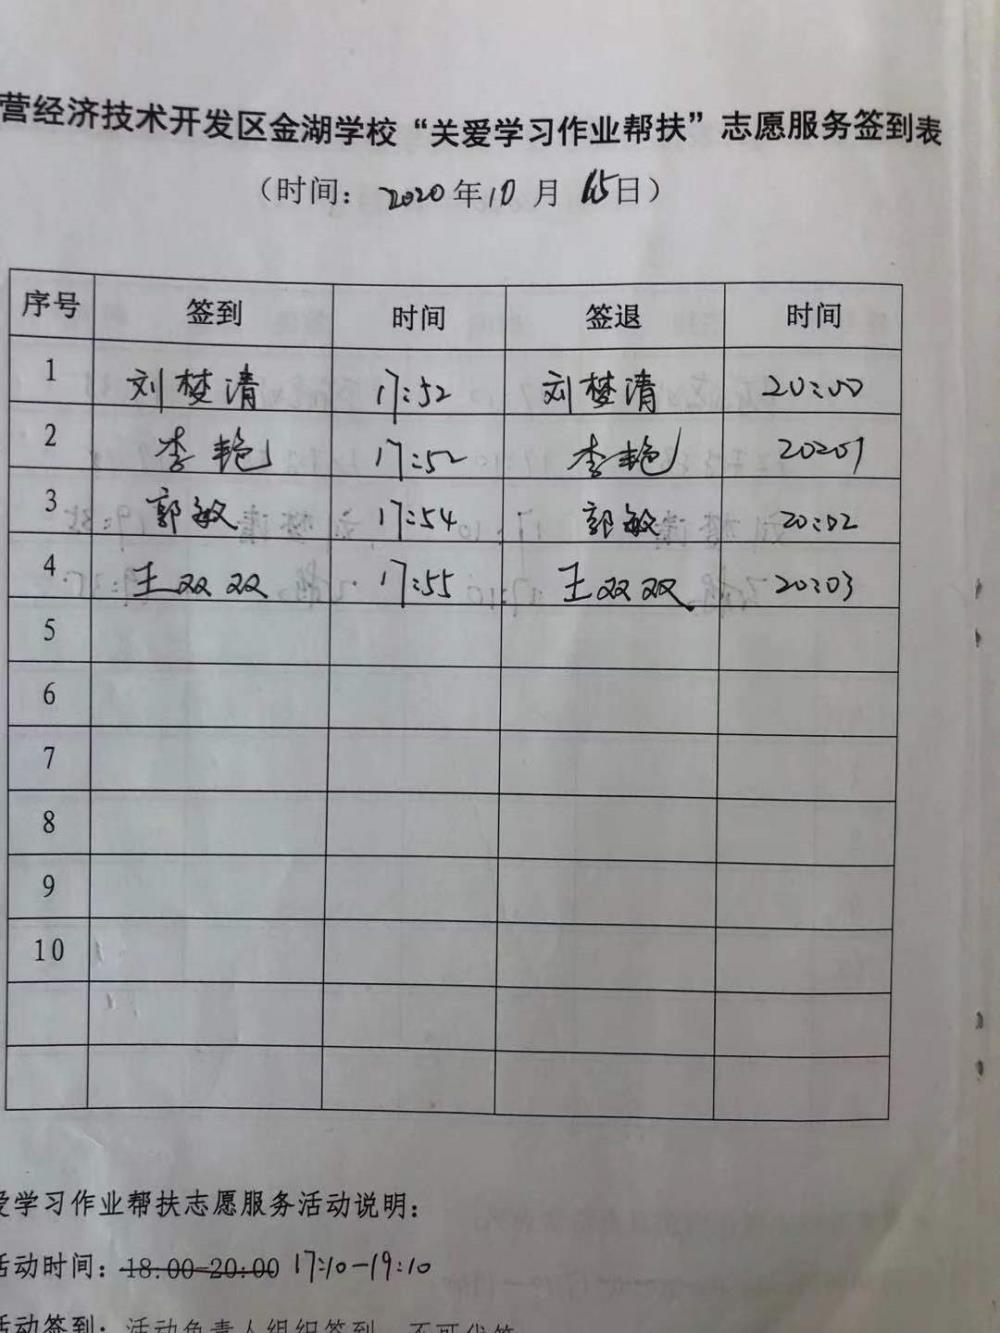 营经济技术开发区金湖学校“关爱学习作业帮扶”志愿服务签到表
（时间：2020年10月15日）
序号 签到 时间 签退 时间
1 刘梦清 17:52 刘梦清 20:00
2 李艳 17:52 李艳 20:01
3 郭敏 17:54 郭敏 20:02
4 王双双 17:55 王双双 20:03
5
6
7
8
9
10
爱学习作业帮扶志愿服务活动说明：
活动时间：18:00-20:00 17:10-19:10
活动签到：活动负责人组织签到，不可代签